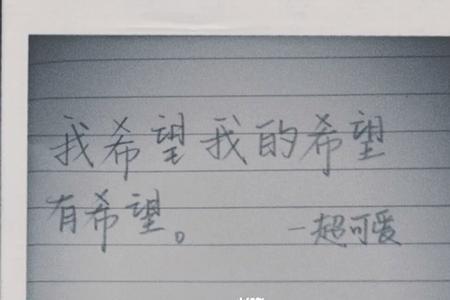 我希望我的希望
有希望。
一超可爱